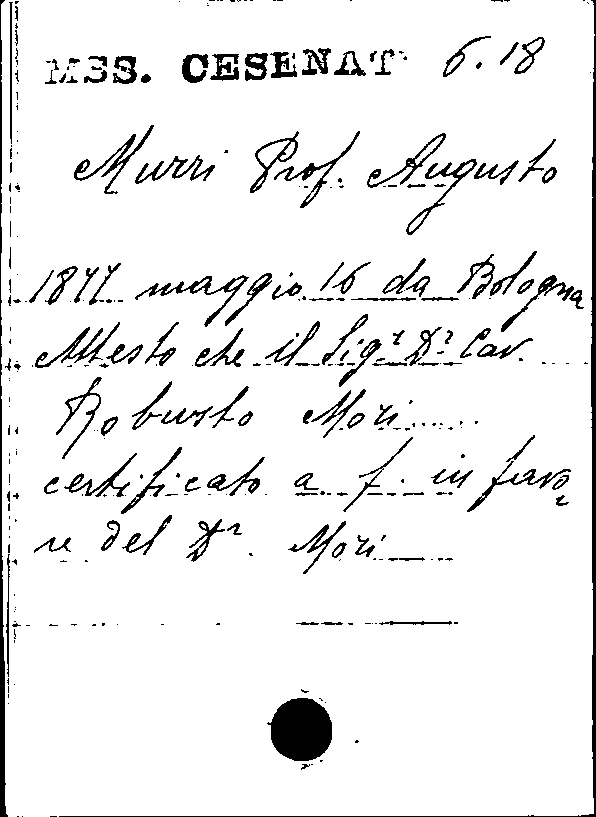 MSS. CESENAT 6.18
Murri Prof. Augusto
1877 maggio 16 da Bologna
Attesto che il Sigr Dr Cav.
Robusto Mori
certificato a f. in favo=
re del Dr. Mori